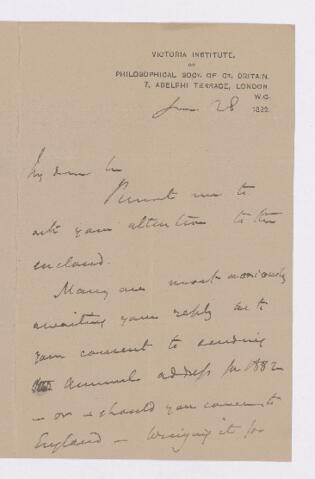 VICTORIA INSTITUTE,
OR
PHILOSOPHICAL SOCY. OF GT. BRITAIN.
7, ADELPHI TERRACE, LONDON.
W.C.
28 1882.
My dear Sir
Permit me to
ask your attention to the
enclosed.
Many are most anxiously
awaiting your reply as to
your consent to sending
Annual address for 1882
— or — should you come to
England — bringing it for